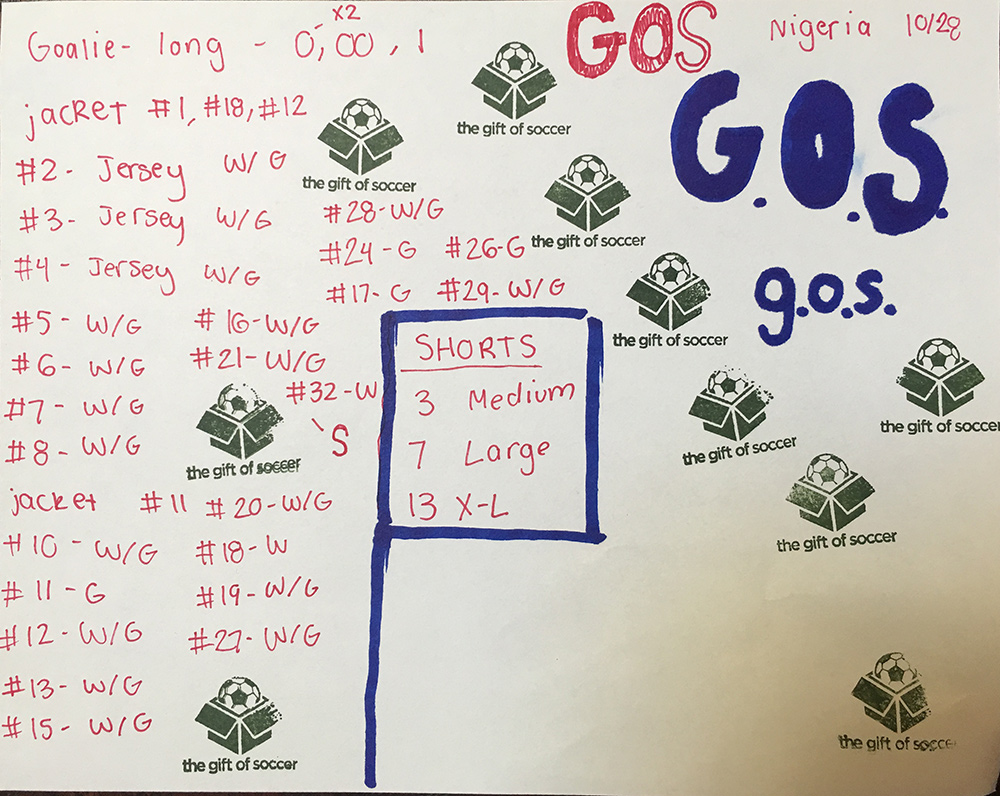 x2
Goalie- long - 0, 00, 1
GOS
Nigeria 10/28
G.O.S.
g.o.s.
jacket #1, #18, #12
#2- Jersey W/G
#3- Jersey W/G
#4- Jersey W/G
#28-W/G
#24-G #26-G
#17-G #29-W/G
#5- W/G #16-W/G
#6- W/G #21-W/G
#7- W/G #32-W
#8- W/G S
jacket #11 #20-W/G
#10- W/G #18-W
#11-G #19-W/G
#12-W/G #27-W/G
#13- W/G
#15- W/G
SHORTS
3 Medium
7 Large
13 X-L
the gift of soccer
the gift of soccer
the gift of soccer
the gift of soccer
the gift of soccer
the gift of soccer
the gift of soccer
the gift of soccer
the gift of soccer
the gift of soccer